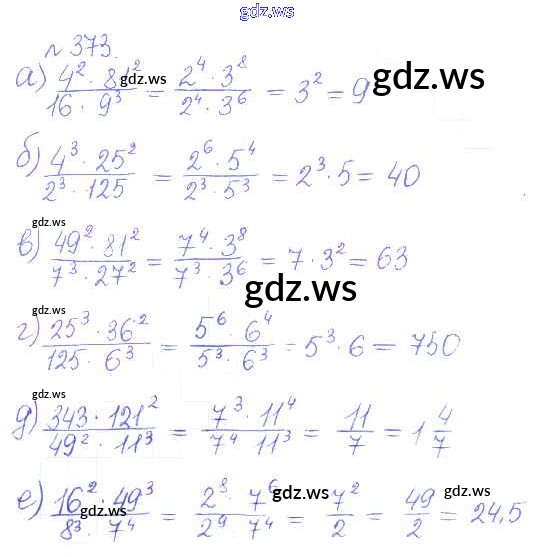 gdz.ws
№ 373.
а) 4² · 81² / 16 · 9³ = 2⁴ · 3⁸ / 2⁴ · 3⁶ = 3² = 9
gdz.ws
gdz.ws
б) 4³ · 25² / 2³ · 125 = 2⁶ · 5⁴ / 2³ · 5³ = 2³ · 5 = 40
gdz.ws
в) 49² · 81² / 7³ · 27² = 7⁴ · 3⁸ / 7³ · 3⁶ = 7 · 3² = 63
gdz.ws
gdz.ws
г) 25³ · 36² / 125 · 6³ = 5⁶ · 6⁴ / 5³ · 6³ = 5³ · 6 = 750
gdz.ws
д) 343 · 121² / 49² · 11³ = 7³ · 11⁴ / 7⁴ 11³ = 11/7 = 1 4/7
gdz.ws
е) 16² · 49³ / 8³ · 7⁴ = 2⁸ · 7⁶ / 2⁹ · 7⁴ = 7²/2 = 49/2 = 24,5
gdz.ws
gdz.ws
gdz.ws